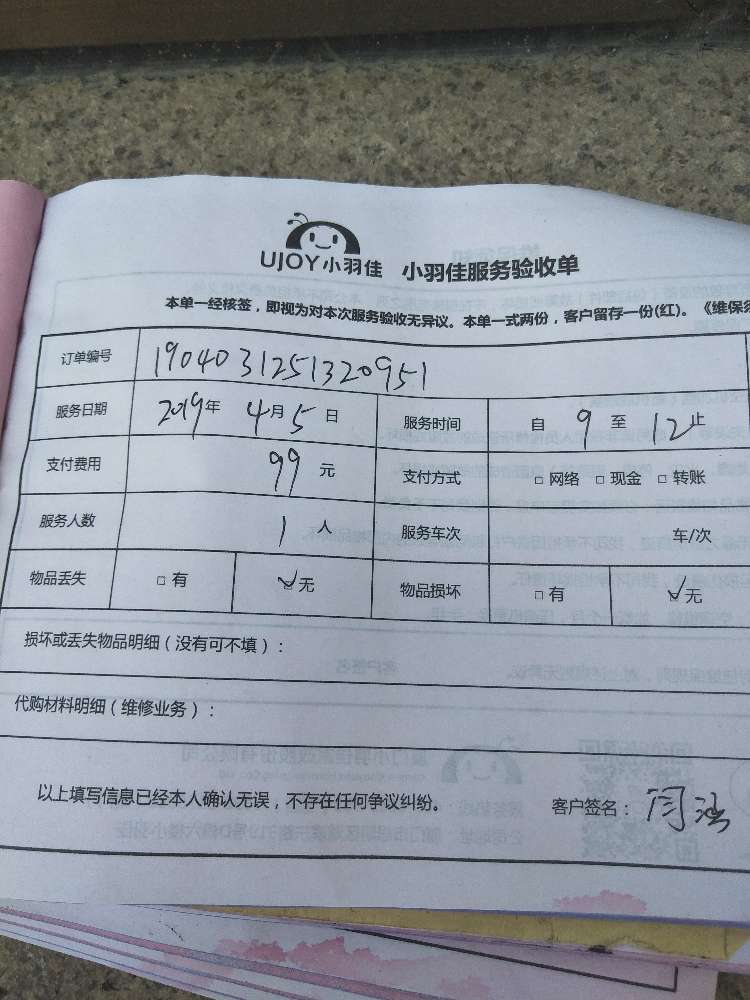 UJOY小羽佳 小羽佳服务验收单
本单一经核签，即视为对本次服务验收无异议。本单一式两份，客户留存一份(红)。《维保须
订单编号 1904031251320951
服务日期 2019年 4月5日 服务时间 自 9 至 12止
支付费用 99 元 支付方式 □ 网络 □ 现金 □ 转账
服务人数 1 人 服务车次 车/次
物品丢失 □ 有 ☑ 无 物品损坏 □ 有 ☑ 无
损坏或丢失物品明细（没有可不填）：
代购材料明细（维修业务）：
以上填写信息已经本人确认无误，不存在任何争议纠纷。 客户签名：闫涵